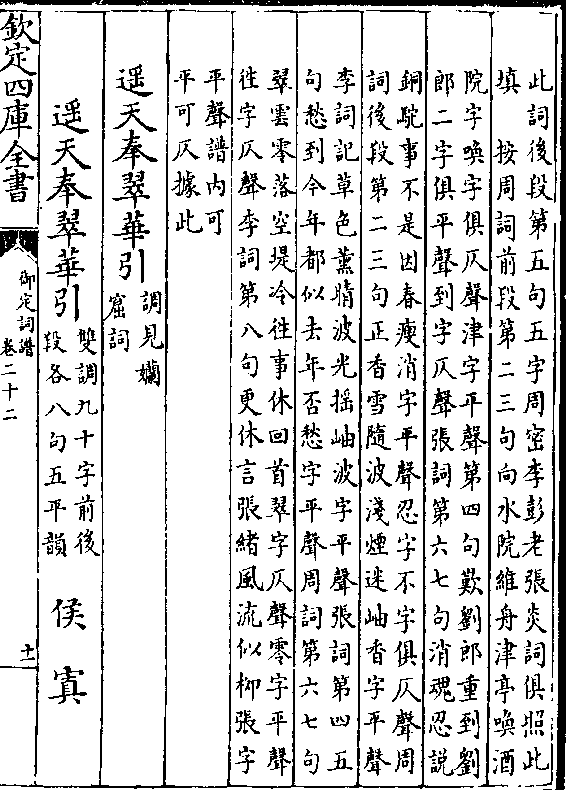 此詞後段第五句五字周密李彭老張炎詞俱照此
填　按周詞前段第二三句向水院維舟津亭喚酒
院字喚字俱仄聲津字平聲第四句歎劉郎重到劉
郎二字俱平聲到字仄聲張詞第六七句消魂忍說
銅駝事不是因春瘦消字平聲忍字不字俱仄聲周
詞後段第二三句正香雪隨波淺煙迷岫香字平聲
李詞記草色薰晴波光搖岫波字平聲張詞第四五
句愁到今年都似去年否愁字平聲周詞第六七句
翠雲零落空堤冷徃事休回首翠字仄聲零字平聲
徃字仄聲李詞第八句更休言張緒風流似柳張字
平聲譜内可
平可仄據此
遥天奉翠華引
調見嬾
窟詞
遥天奉翠華引
雙調九十字前後
段各八句五平韻
侯寘
欽定四庫全書
御定詞譜
卷二十二
十一